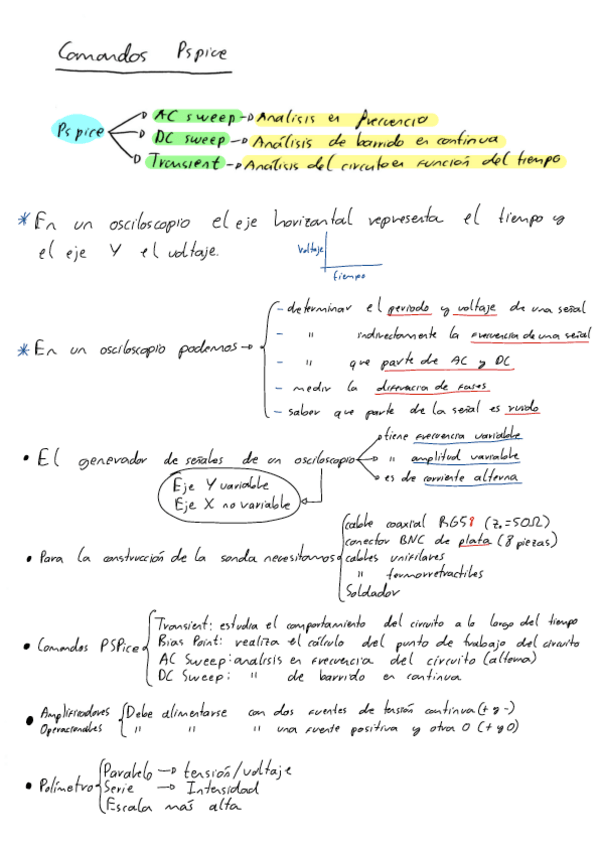 Comandos Pspice
Pspice
AC sweep → Analisis en frecuencia
DC sweep → Análisis de barrido en continua
Transient → Análisis del circuito en función del tiempo
* En un osciloscopio el eje horizontal representa el tiempo y
el eje Y el voltaje.
Voltaje
tiempo
* En un osciloscopio podemos →
- determinar el periodo y voltaje de una señal
- " indirectamente la frecuencia de una señal
- " que parte de AC y DC
- medir la diferencia de fases
- saber que parte de la señal es ruido
• El generador de señales de un osciloscopio
tiene frecuencia variable
" amplitud variable
es de corriente alterna
Eje Y variable
Eje X no variable
• Para la construcción de la sonda necesitamos
cable coaxial RG58 (z₀=50Ω)
conector BNC de plata (8 piezas)
cables unifilares
" termorretractiles
Soldador
• Comandos PSPice
Transient: estudia el comportamiento del circuito a lo largo del tiempo
Bias Point: realiza el cálculo del punto de trabajo del circuito
AC Sweep: analisis en frecuencia del circuito (alterna)
DC Sweep: " de barrido en continua
• Amplificadores Operacionales
Debe alimentarse con dos fuentes de tensión continua (+ y -)
" " " una fuente positiva y otra 0 (+ y 0)
• Polímetro
Paralelo → tensión/voltaje
Serie → Intensidad
Escala más alta